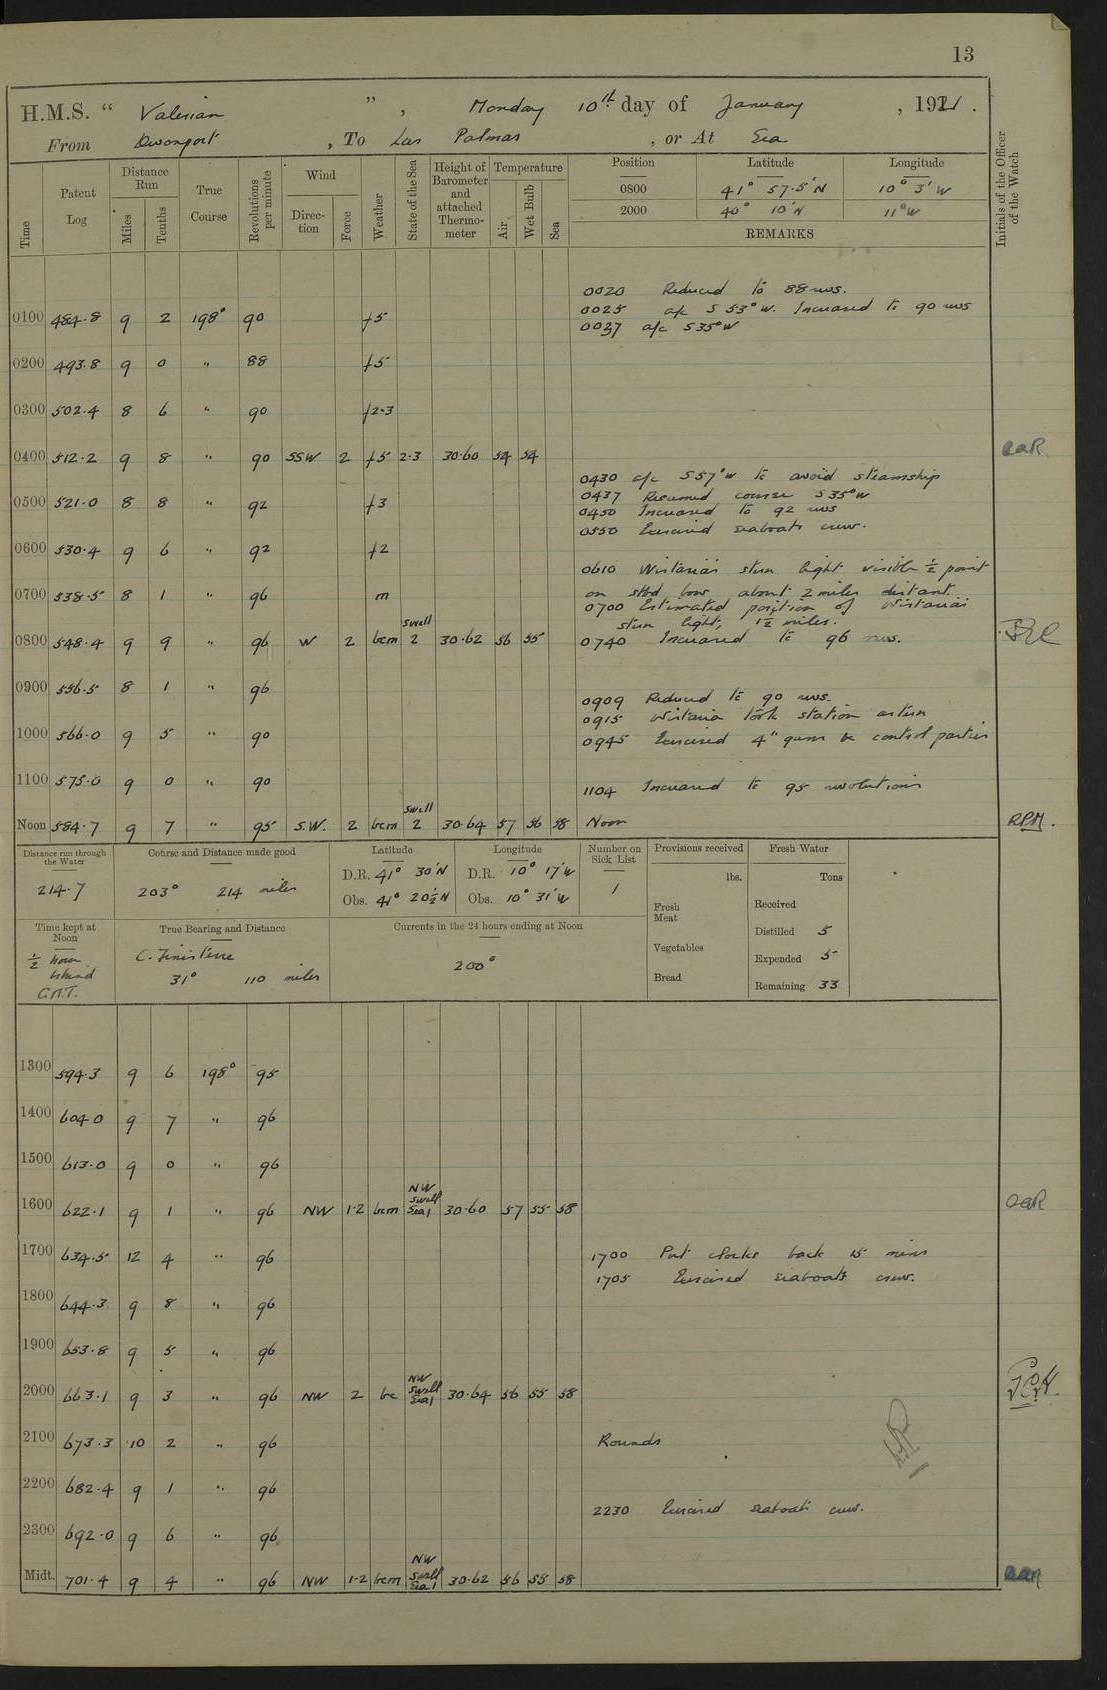 13
H.M.S. “ Valerian ” , Monday 10th day of January , 1921 .
From Devonport , To Las Palmas , or At Sea
Time Patent Log Distance Run Miles Tenths True Course Revolutions per minute Wind Direction Force Weather State of the Sea Height of Barometer and attached Thermometer Temperature Air Wet Bulb Sea Position Latitude Longitude Initials of the Officer of the Watch
0800 41° 57.5'N 10° 3' W
2000 40° 10'N 11° W
REMARKS
0020 Reduced to 88 revs.
0025 a/c S 53° W. Increased to 90 revs
0100 484.8 9 2 198° 90 f5
0037 a/c S 35° W
0200 493.8 9 0 " 88 f5
0300 502.4 8 6 " 90 f2-3
0400 512.2 9 8 " 90 SSW 2 f5 2-3 30.60 54 54
0430 a/c S 57° W to avoid steamship
0437 Resumed course S 35° W
0500 521.0 8 8 " 92 f3
0450 Increased to 92 revs
0550 Exercised seaboats crew.
0600 530.4 9 6 " 92 f2
0610 Wistaria's stern light visible ½ point
0700 538.5 8 1 " 96 m
on stbd bow about 2 miles distant.
0700 Estimated position of Wistaria's
stern light, 1½ miles.
0800 548.4 9 9 " 96 W 2 bcm swell 2 30.62 56 55
0740 Increased to 96 revs.
0900 556.5 8 1 " 96
0909 Reduced to 90 revs.
0915 Wistaria took station astern
1000 566.0 9 5 " 90
0945 Exercised 4" guns & control parties
1100 575.0 9 0 " 90
1104 Increased to 95 revolutions
Noon 584.7 9 7 " 95 S.W. 2 bcm swell 2 30.64 57 56 58 Noon RPM.
Distance run through the Water 214.7
Course and Distance made good 203° 214 miles
Latitude D.R. 41° 30'N Obs. 41° 20½'N
Longitude D.R. 10° 17'W Obs. 10° 31'W
Number on Sick List 1
Provisions received lbs. Fresh Meat Vegetables Bread
Fresh Water Tons
Received
Distilled 5
Expended 5
Remaining 33
Time kept at Noon ½ hour behind G.M.T.
True Bearing and Distance C. Finisterre 31° 110 miles
Currents in the 24 hours ending at Noon 200°
1300 594.3 9 6 198° 95
1400 604.0 9 7 " 96
1500 613.0 9 0 " 96
1600 622.1 9 1 " 96 NW 1-2 bcm NW swell Sea 1 30.60 57 55 58
1700 634.5 12 4 " 96
1700 Put clocks back 15 mins
1705 Exercised seaboats crew.
1800 644.3 9 8 " 96
1900 653.8 9 5 " 96
2000 663.1 9 3 " 96 NW 2 bc NW swell Sea 1 30.64 56 55 58
2100 673.3 10 2 " 96 Rounds
2200 682.4 9 1 " 96
2230 Exercised seaboats crew.
2300 692.0 9 6 " 96
Midt. 701.4 9 4 " 96 NW 1-2 bcm NW swell Sea 1 30.62 56 55 58